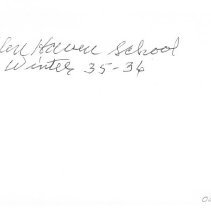 Haven School
Winter 35-36